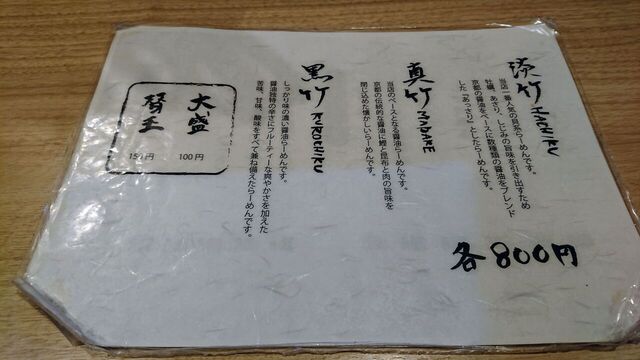 淡竹 HACHIKU
当店一番人気の貝系らーめんです。
牡蠣、あさり、しじみの旨味を引き出すため
京都の醤油をベースに数種類の醤油をブレンド
した「あっさり」としたらーめんです。
真竹 MADAKE
当店のベースとなる醤油らーめんです。
京都の伝統的な醤油に鰹と昆布と肉の旨味を
閉じ込めた懐かしいらーめんです。
黒竹 KUROCHIKU
しっかり味の濃い醤油らーめんです。
醤油独特の辛さにフルーティーな爽やかさを加えた
苦味、甘味、酸味をすべて兼ね備えたらーめんです。
大盛 100円
替玉 150円
各800円